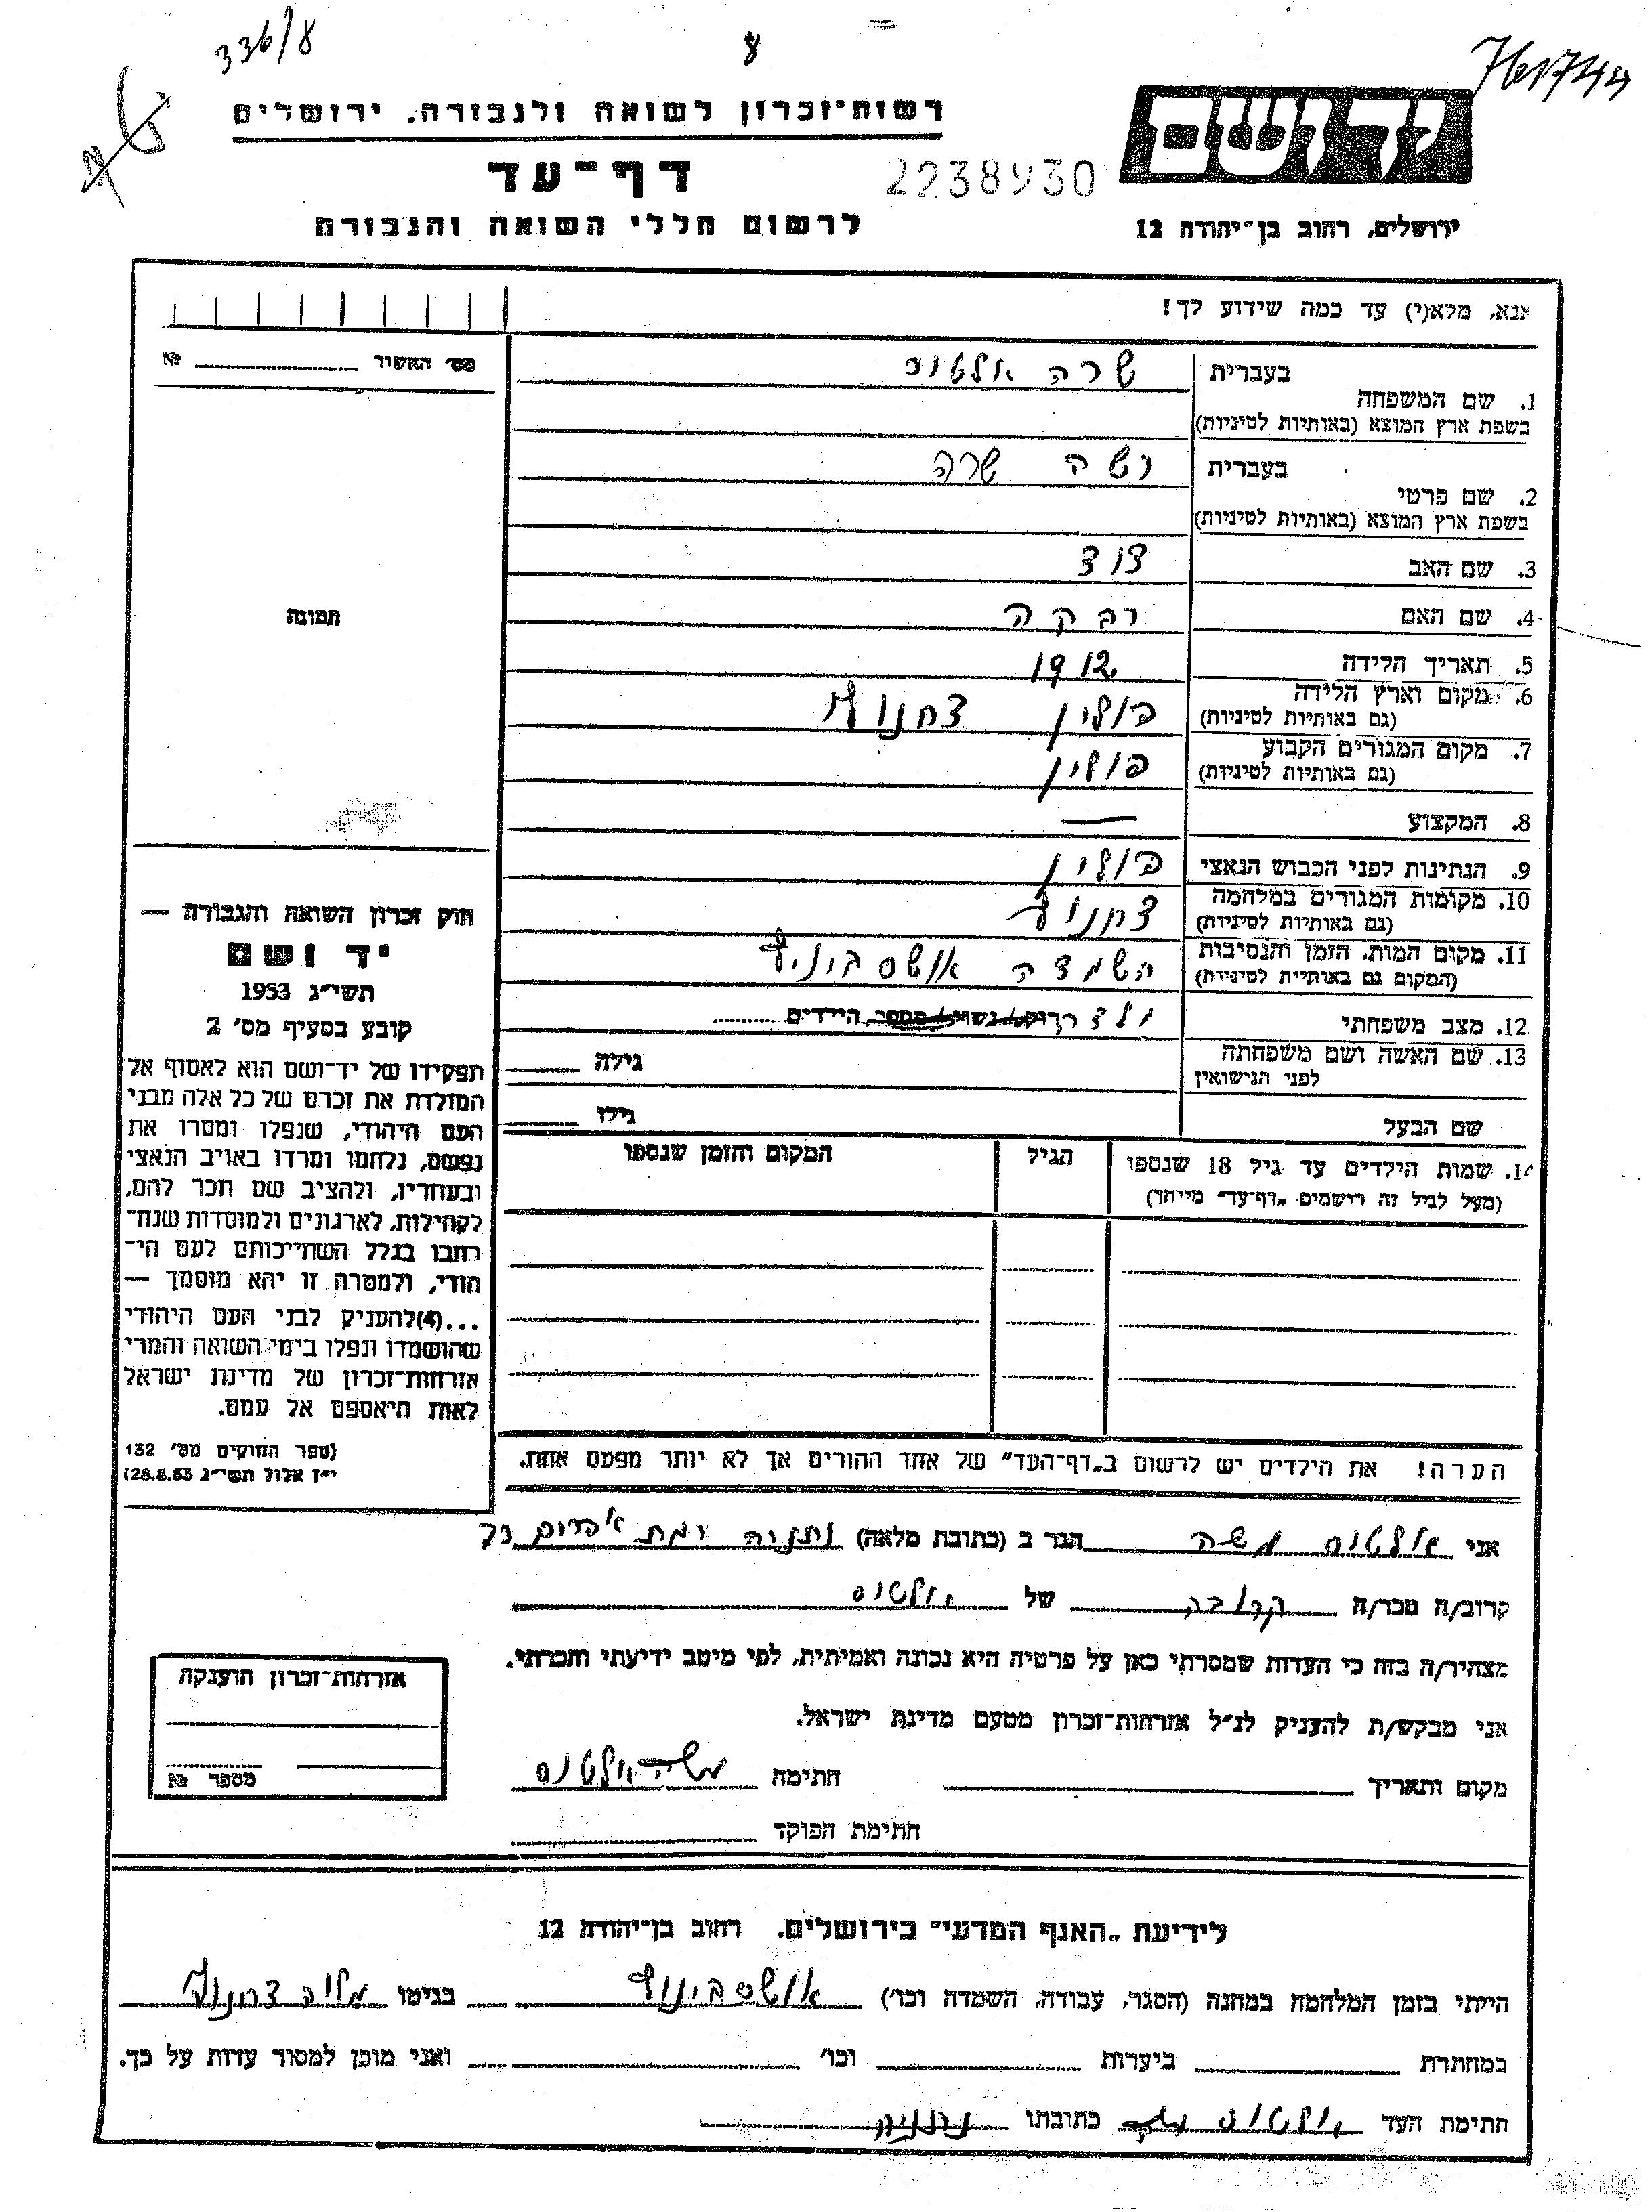 336/8
רשות-זכרון לשואה ולגבורה. ירושלים
דף-עד
2238930
לרשום חללי השואה והגבורה
ירושלים, רחוב בן-יהודה 12
אנא, מלא(י) עד כמה שידוע לך!
מס׳ האשור № 
בעברית שרה אלטוס
1. שם המשפחה
בשפת ארץ המוצא (באותיות לטיניות)
בעברית שרה
2. שם פרטי
בשפת ארץ המוצא (באותיות לטיניות)
3. שם האב דוד
4. שם האם רבקה
5. תאריך הלידה 1912
6. מקום וארץ הלידה פולין צחנוב
(גם באותיות לטיניות)
7. מקום המגורים הקבוע פולין
(גם באותיות לטיניות)
8. המקצוע —
9. הנתינות לפני הכבוש הנאצי פולין
10. מקומות המגורים במלחמה צחנוב
(גם באותיות לטיניות)
11. מקום המות, הזמן והנסיבות השמדה
(המקום גם באותיית לטיניית)
12. מצב משפחתי הילדים
13. שם האשה ושם משפחתה גילה
לפני הנישואין
שם הבעל גילו
14. שמות הילדים עד גיל 18 שנספו הגיל המקום והזמן שנספו
(מעל לגיל זה רישמים „דף-עד״ מייחד)
הערה! את הילדים יש לרשום ב„דף-העד״ של אחד ההורים אך לא יותר מפעם אחת.
תמונה
חוק זכרון השואה והגבורה —
יד ושם
תשי״ג 1953
קובע בסעיף מס׳ 2
תפקידו של יד-ושם הוא לאסוף אל
המולדת את זכרם של כל אלה מבני
העם היהודי, שנפלו ומסרו את
נפשם, נלחמו ומרדו באויב הנאצי
ובעוזריו, ולהציב שם וזכר להם,
לקהילות, לארגונים ולמוסדות שנח-
רחבו בגלל השתייכותם לעם הי-
הודי, ולמטרה זו יהא מוסמך —
...(4)להעניק לבני העם היהודי
שהושמדו ונפלו בימי השואה והמרי
אזרחות-זכרון של מדינת ישראל
לאות היאספם אל עמם.
(ספר החוקים מס׳ 132
י״ז אלול תשי״ג 28.8.53)
אני אלטוס משה הגר ב (כתובת מלאה) נתניה רמת אפרים
קרוב/ה מכר/ה קרובה של אלטוס
מצהיר/ה בזה כי העדות שמסרתי כאן על פרטיה היא נכונה ואמיתית, לפי מיטב ידיעתי והכרתי.
אני מבקש/ת להעניק לנ״ל אזרחות-זכרון מטעם מדינת ישראל.
מקום ותאריך חתימה משה אלטוס
חתימת הפוקד
אזרחות-זכרון הוענקה
מספר №
לידיעת „האגף המדעי״ בירושלים. רחוב בן-יהודה 12
הייתי בזמן המלחמה במחנה (הסגר, עבודה, השמדה וכו׳) בגיטו
במחתרת ביערות וכו׳ ואני מוכן למסור עדות על כך.
חתימת העד אלטוס משה כתובתו נתניה